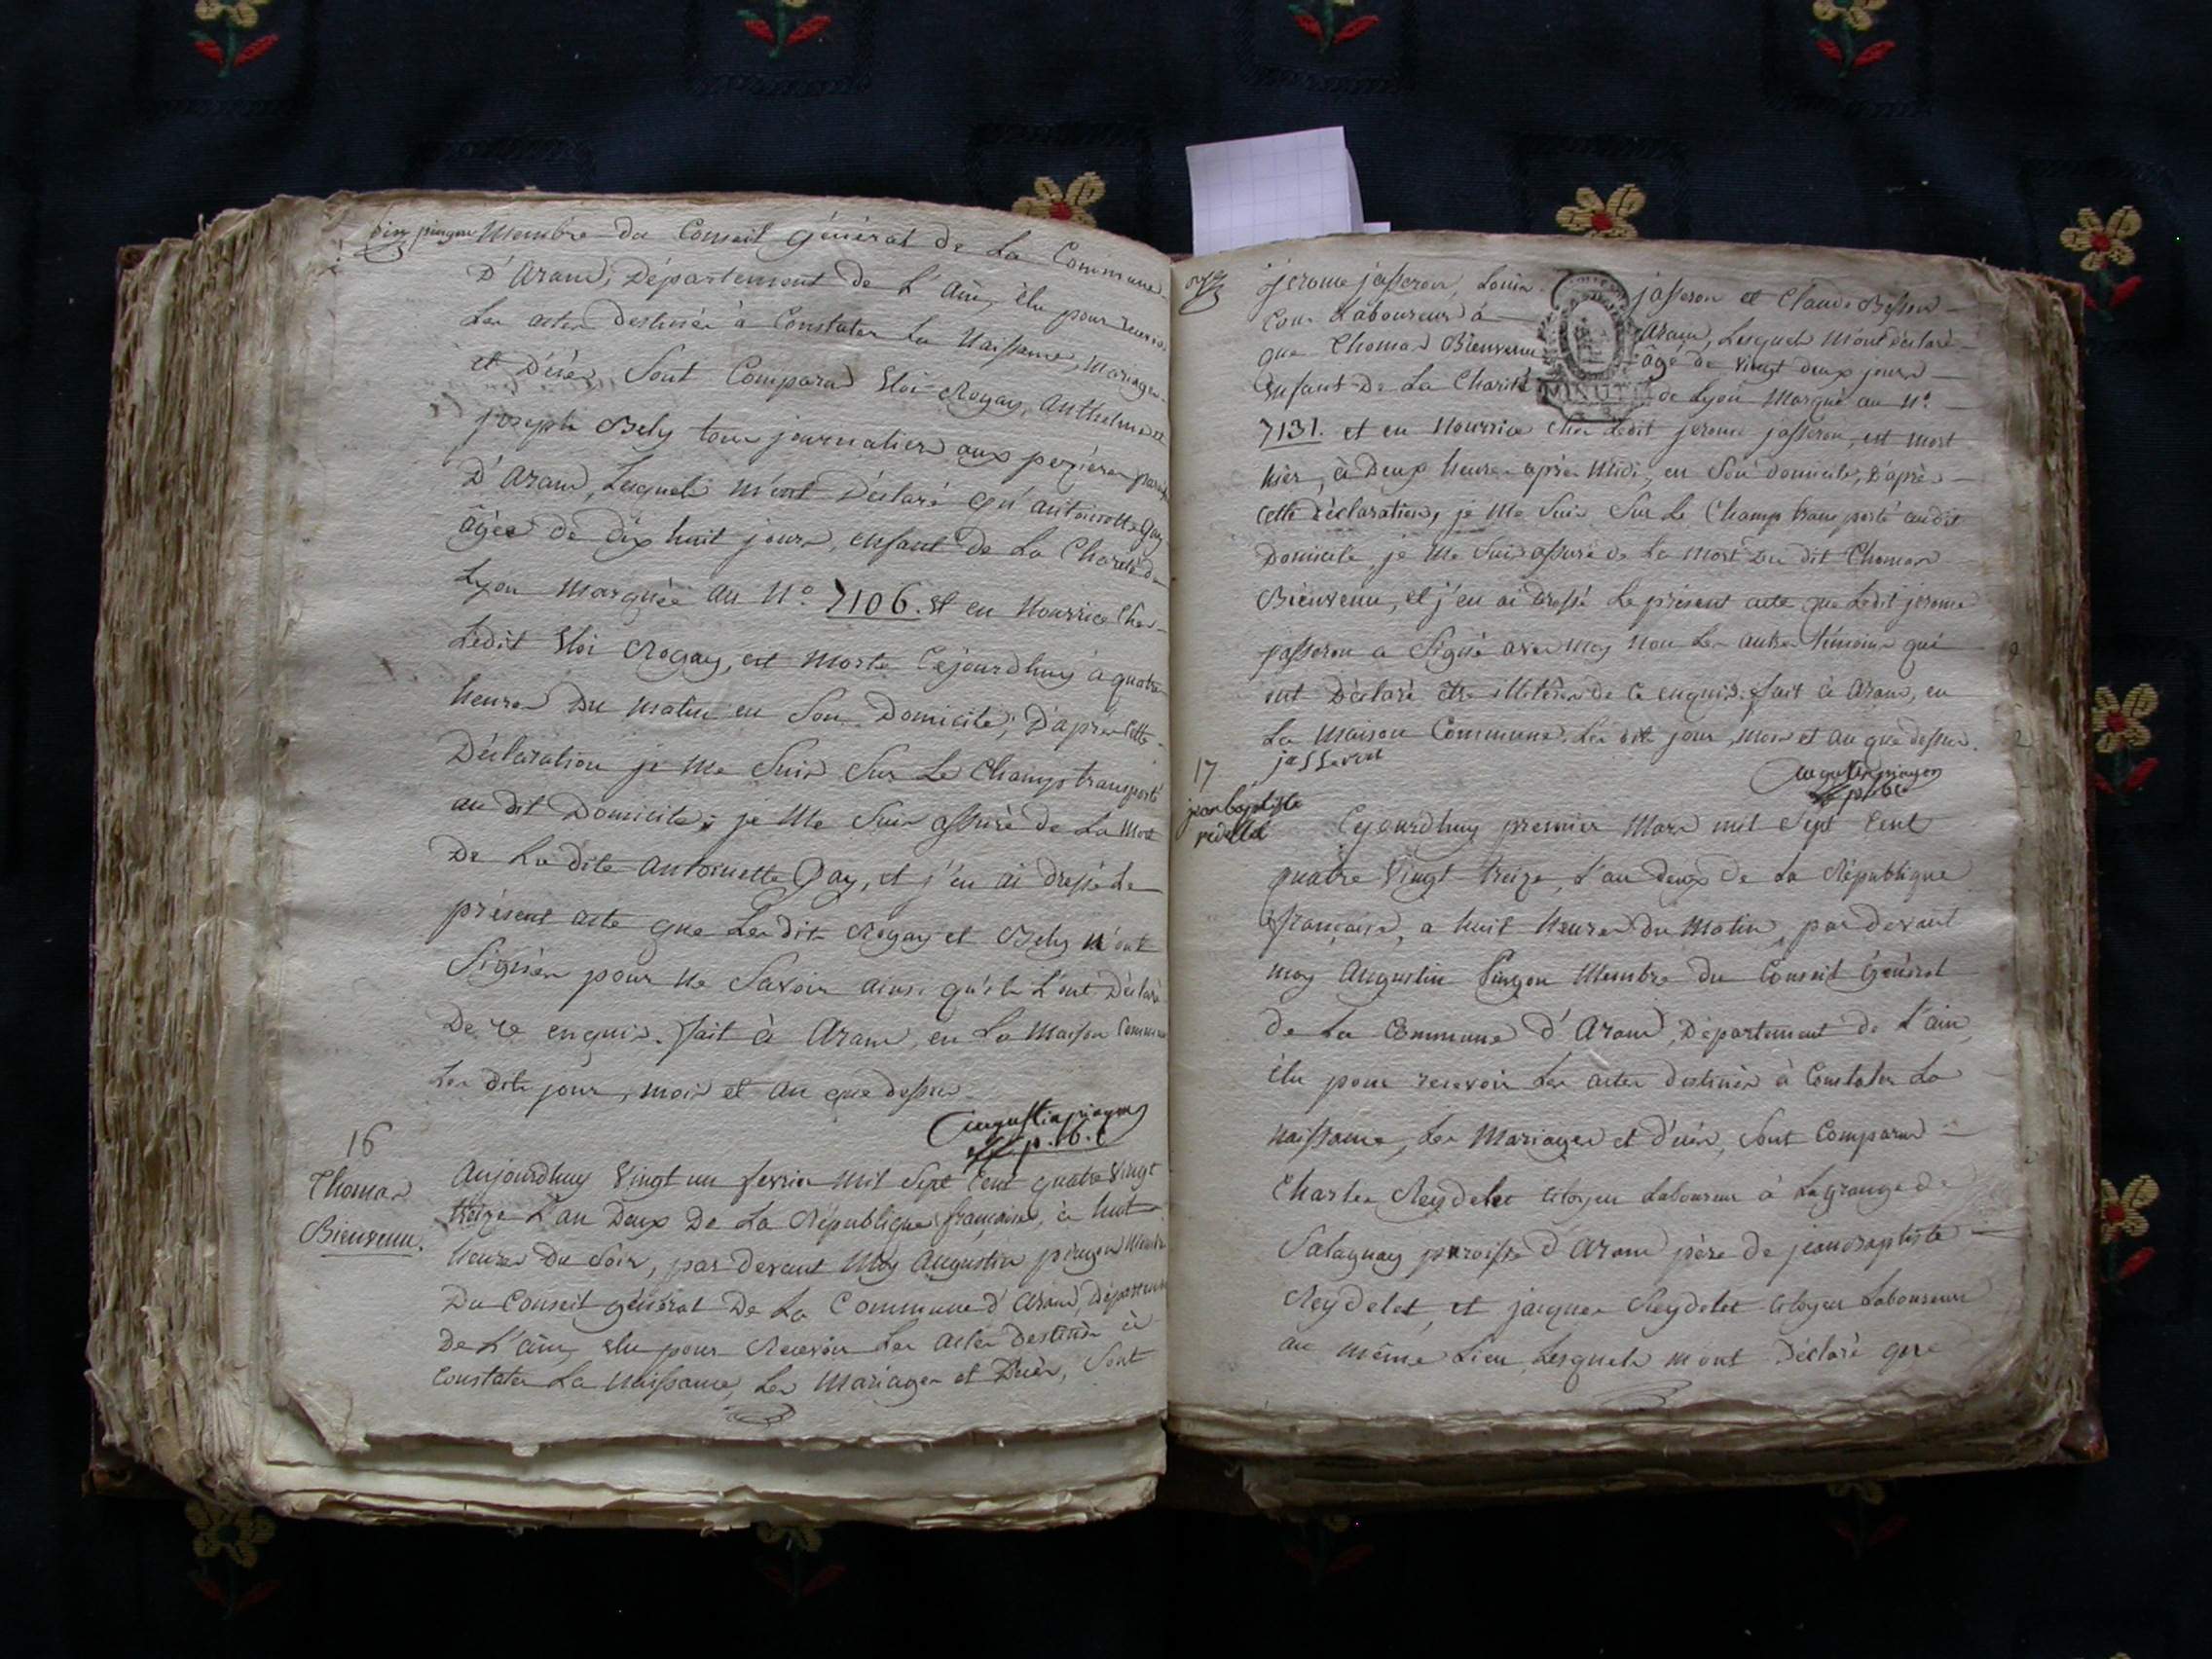 dix pingon Membre du Conseil général de La Commune
D'Arand, Département de L'Ain, élu pour recevoir
Les actes destinés à Constater La Naissance, Mariages
et Décès, Sont Comparus Eloi Rogay, Anthelme et
joseph Bely tous journaliers aux pezières paroisse
D'Arand, Lesquels m'ont Déclaré qu'antoinette Gay
âgée de dix huit jours, enfant de La Charité de
Lyon Marquée au N.º 7106. et en Nourrice Chez
Ledit Eloi Rogay, est Morte Cejourdhuy à quatre
heures Du matin en Son Domicile; D'après Cette
Déclaration je Me Suis Sur Le Champ transporté
au dit Domicile, je Me Suis assuré de La Mort
De La dite antoinette Gay, et j'en ai dressé Le
présent acte que Les dits Rogay et Bely n'ont
Signés pour Ne Savoir ainsi qu'ils L'ont Déclaré
De ce enquis. fait à Arand, en La Maison Commune
Les dits jour, mois et an que dessus.
augustin pingon
p. b. c
16
Thomas
Bienvenu.
Aujourdhuy Vingt un fevrier Mil Sept Cent quatre Vingt
treize L'an Deux De La République française, à huit
heures Du Soir, par devant Moy Augustin pingon Membre
Du Conseil général De La Commune d'Arand, Département
De L'ain, elu pour Recevoir Les actes destinés à
Constater La Naissance, Les Mariages et Décès, Sont
onze
jerome jasseron, Louis jasseron et Claude Besson
tous Laboureurs à Arand, Lesquels M'ont déclaré
que Thomas Bienvenu âgé de vingt deux jours
Enfant De La Charité de Lyon Marqué au N.º
MINUTE
7131. et en Nourrice chez Ledit jerome jasseron, est mort
hier, à Deux heures après Midi, en Son domicile, D'après
cette déclaration, je Me Suis Sur Le Champ transporté audit
Domicile, je Me Suis assuré de La mort du dit Thomas
Bienvenu, et j'en ai dressé Le présent acte que Ledit jerome
jasseron a Signé avec moy non Les autres témoins qui
ont Déclaré être illitérés de ce enquis. fait à Arand, en
La Maison Commune, Les dits jour, mois et an que dessus.
jasseron
augustin pingon
p. b. c
17
jean baptiste
reidellet
Cejourdhuy premier Mars mil Sept Cent
quatre Vingt treize, L'an deux de La République
française, a huit heures Du Matin, par devant
moy Augustin Pingon Membre du Conseil Général
de La Commune d'Arand, Département de L'ain,
élu pour recevoir Les actes destinés à Constater La
naissance, Les Mariages et décès, Sont Comparus
Charles Reydelet Citoyen Laboureur à La grange de
Salagnay paroisse d'Arand père de jean Baptiste
Reydelet, et jacques Reydelet Citoyen Laboureur
au même Lieu Lesquels mont Déclaré que